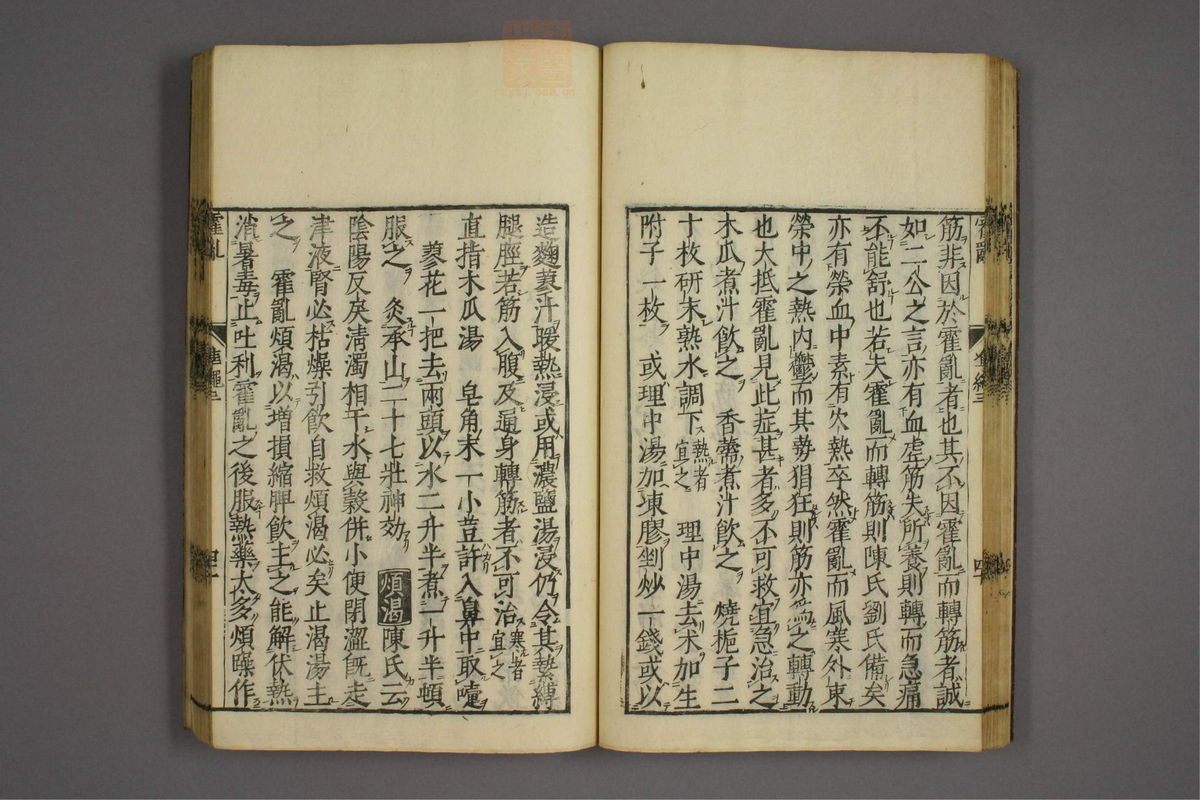 筋非因於霍亂者也其不因霍亂而轉筋者誠
如二公之言亦有血虛筋失所養則轉而急痛
不能舒也若夫霍亂而轉筋則陳氏劉氏備矣
亦有榮血中素有火熱卒然霍亂而風寒外束
榮中之熱內鬱而其勢猖狂則筋亦爲之轉動
也大抵霍亂見此症甚者多不可救宜急治之
木瓜煮汁飲之 香薷煮汁飲之 燒梔子二
十枚研末熟水調下熱者宜之 理中湯去朮加生
附子一枚 或理中湯加凍膠剉炒一錢或以
造麴蓼汁暖熱浸或用濃鹽湯浸仍令其紮縛
腿脛若筋入腹及遍身轉筋者不可治寒者宜之
直指木瓜湯 皂角末一小荳許入鼻中取嚏
蓼花一把去兩頭以水二升半煮一升半頓
服之 灸承山二十七壯神効 煩渴陳氏云
陰陽反戾淸濁相干水與穀併小便閉澀旣走
津液腎必枯燥引飲自救煩渴必矣止渴湯主
之 霍亂煩渴以增損縮脾飲主之能解伏熱
消暑毒止吐利霍亂之後服熱藥太多煩躁作
霍亂
四十
霍亂